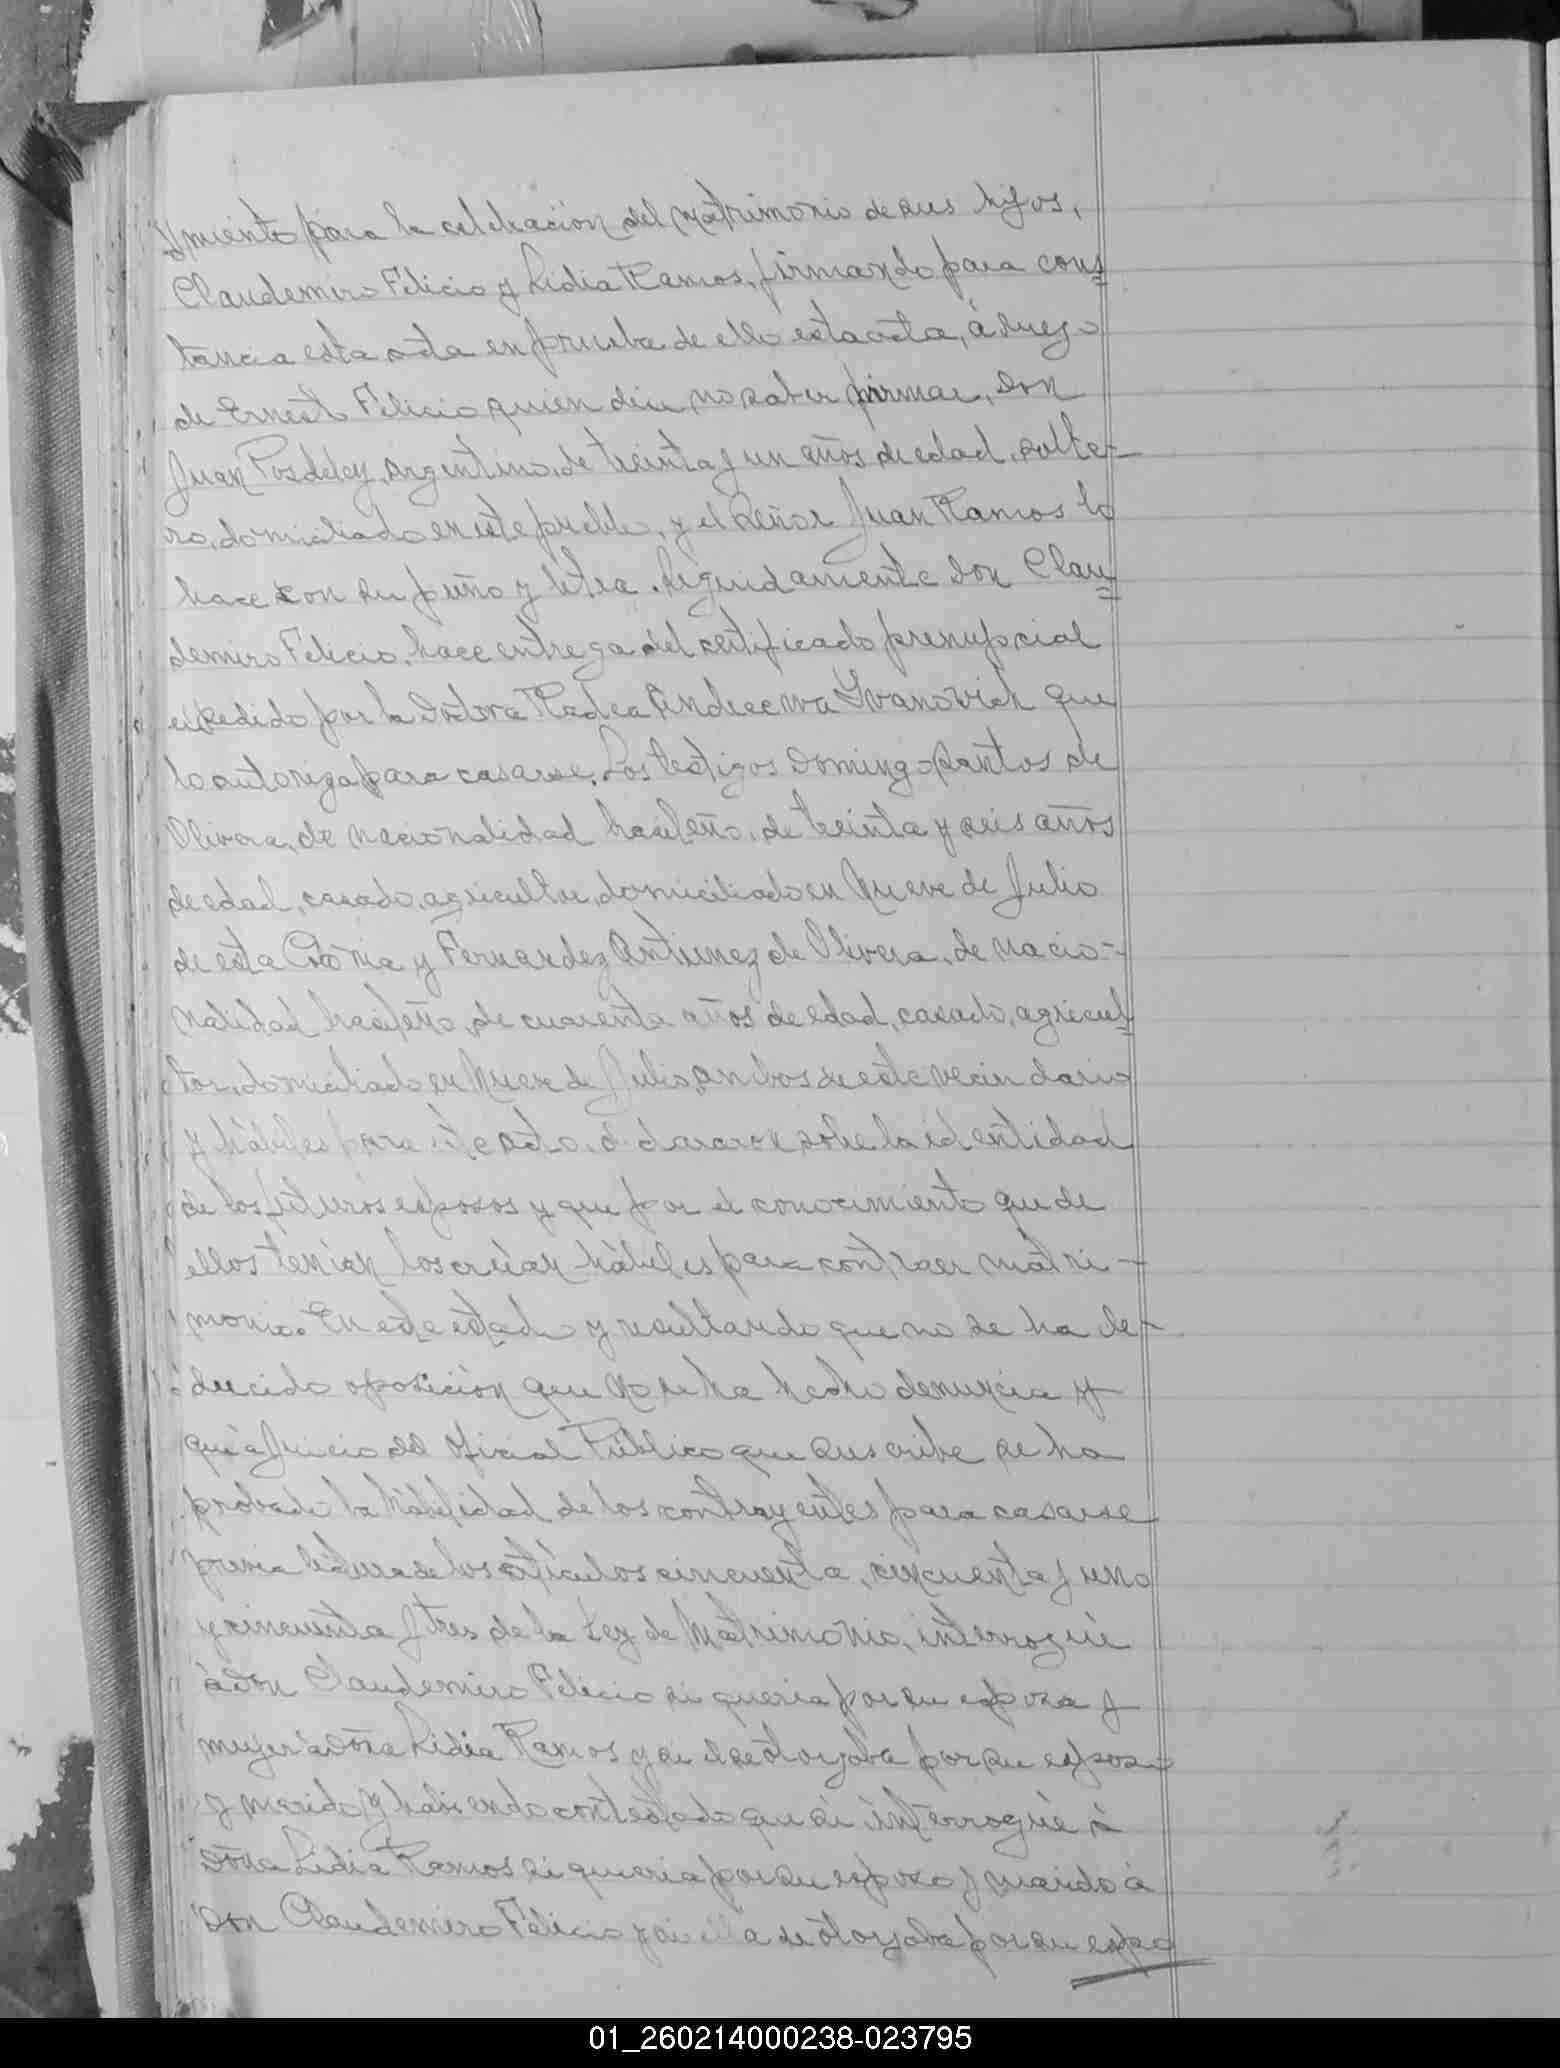 miento para la celebración del matrimonio de sus hijos,
Claudemiro Felicio y Lidia Ramos, firmando para cons
tancia esta acta en prueba de ello esta acta, á ruego
de Ernesto Felicio quien dice no saber firmar, Don
Juan Posdeley, argentino, de treinta y un años de edad, solte-
ro, domiciliado en este pueblo, y el Señor Juan Ramos lo
hace con su puño y letra. Seguidamente Don Clau
demiro Felicio, hace entrega del certificado prenupcial
expedido por la Doctora Radea Andreewa Yvanovich que
lo autoriza para casarse. Los testigos Domingo Santos de
Olivera, de nacionalidad brasileño, de treinta y seis años
de edad, casado, agricultor, domiciliado en Nueve de Julio
de esta Colonia y Fernandez Antunez de Olivera, de nacio-
nalidad brasileño, de cuarenta años de edad, casado, agricul
tor, domiciliado en Nueve de Julio, ambos de este vecindario
y hábiles para este acto, declararon sobre la identidad
de los futuros esposos y que por el conocimiento que de
ellos tenian los creían hábiles para contraer matri-
monio. En este estado y resultando que no se ha de-
ducido oposición que no se ha hecho denuncia y
que á juicio del Oficial Público que suscribe se ha
probado la habilidad de los contrayentes para casarse
previa lectura de los artículos cincuenta, cincuenta y uno
y cincuenta y tres de la Ley de Matrimonio, interrogué
á Don Claudemiro Felicio si queria por su esposa y
mujer á Doña Lidia Ramos y si el se otorgaba por su esposo
y marido y habiendo contestado que si interrogué á
Doña Lidia Ramos si queria por su esposo y marido á
Don Claudemiro Felicio y si ella se otorgaba por su espo
01_260214000238-023795